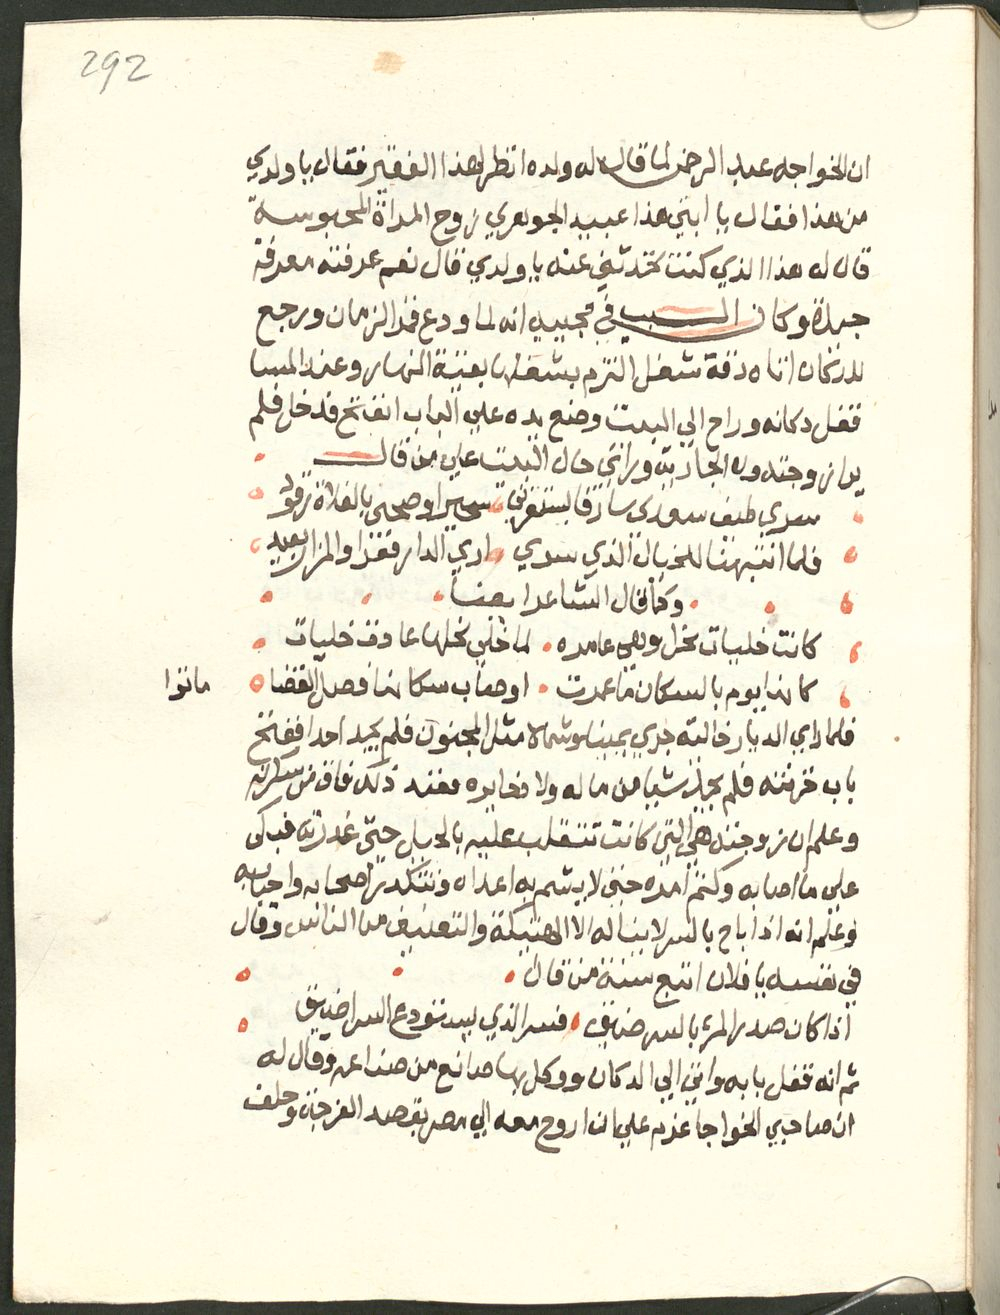 292
ان الخواجه عبد الرحمن لما قال له ولده انظر لهذا الفقير فقال يا ولدي
من هذا فقال يا ابتي هذا عبيد الجوهري زوج المراة المحبوسة
قال له هذا الذي كنت تحدثني عنه يا ولدي قال نعم عرفته معرفة
جيدة وكان السبب في مجييه انه لما ودع قمر الزمان ورجع
للدكان اتاه دقة شغل التزم بشغلها بقية النهار وعند المسا
قفل دكانه وراح الي البيت وضع يده علي الباب انفتح فدخل فلم
يرا زوجته ولا الجارية وراي حال البيت علي من قال
سري طيف سعدي سارقا يستفزني سحيرا وصحبي بالفلاة رقود
فلما انتبهنا للخيال الذي سري اري الدار قفرا والمزار بعيد
وكما قال الشاعر ايضا
كانت خليات نحل وهي عامره لما خلي نحلها عادت خليات
كانها يوم بالسكان ما عمرت او صاب سكانها فصل القضا
ماتوا
فلما راي الديار خالية جري يمينا وشمالا مثل المجنون فلم يجد احدا ففتح
باب خزنته فلم يجد شيا من ماله ولا ذخايره فعند ذلك فاق من سكرته
وعلم ان زوجته هي التي كانت تتقلب عليه بالحيل حتي غدرته فبكي
علي ما اصابه وكتم امره حتي لا يشم به اعداه وتتكدر اصحابه واحبابه
وعلم انه اذا باح بالسر لا يناله الا الهتيكة والتعنيف من الناس وقال
في نفسه يا فلان اتبع سنة من قال
اذا كان صدر المرء بالسر ضيق فسر الذي يستودع السر اضيق
ثم انه قفل بابه واتي الي الدكان ووكل بها صانع من صناعه وقال له
ان صاحبي الخواجا عزم علي ان اروح معه الي مصر بقصد الفرجة وحلف